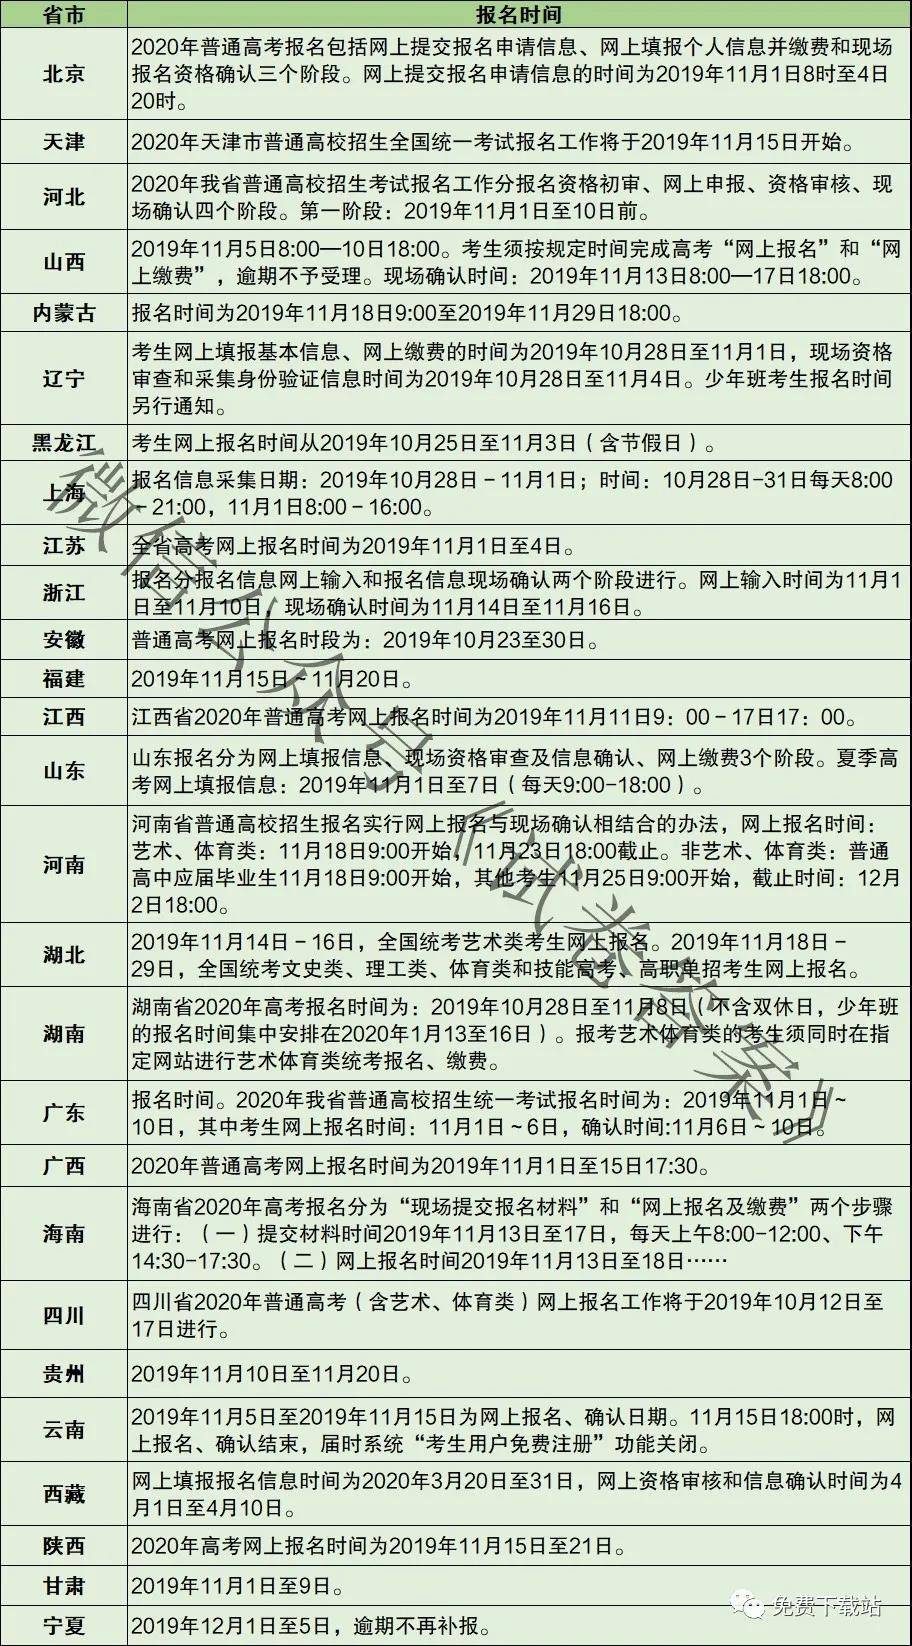 省市 报名时间
北京
2020年普通高考报名包括网上提交报名申请信息、网上填报个人信息并缴费和现场
报名资格确认三个阶段。网上提交报名申请信息的时间为2019年11月1日8时至4日
20时。
天津
2020年天津市普通高校招生全国统一考试报名工作将于2019年11月15日开始。
河北
2020年我省普通高校招生考试报名工作分报名资格初审、网上申报、资格审核、现
场确认四个阶段。第一阶段：2019年11月1日至10日前。
山西
2019年11月5日8:00—10日18:00。考生须按规定时间完成高考“网上报名”和“网
上缴费”，逾期不予受理。现场确认时间：2019年11月13日8:00—17日18:00。
内蒙古
报名时间为2019年11月18日9:00至2019年11月29日18:00。
辽宁
考生网上填报基本信息、网上缴费的时间为2019年10月28日至11月1日，现场资格
审查和采集身份验证信息时间为2019年10月28日至11月4日。少年班考生报名时间
另行通知。
黑龙江
考生网上报名时间从2019年10月25日至11月3日（含节假日）。
上海
报名信息采集日期：2019年10月28日－11月1日；时间：10月28日-31日每天8:00
－21:00，11月1日8:00－16:00。
江苏
全省高考网上报名时间为2019年11月1日至4日。
浙江
报名分报名信息网上输入和报名信息现场确认两个阶段进行。网上输入时间为11月1
日至11月10日，现场确认时间为11月14日至11月16日。
安徽
普通高考网上报名时段为：2019年10月23至30日。
福建
2019年11月15日～11月20日。
江西
江西省2020年普通高考网上报名时间为2019年11月11日9：00－17日17：00。
山东
山东报名分为网上填报信息、现场资格审查及信息确认、网上缴费3个阶段。夏季高
考网上填报信息：2019年11月1日至7日（每天9:00-18:00）。
河南
河南省普通高校招生报名实行网上报名与现场确认相结合的办法，网上报名时间：
艺术、体育类：11月18日9:00开始，11月23日18:00截止。非艺术、体育类：普通
高中应届毕业生11月18日9:00开始，其他考生11月25日9:00开始，截止时间：12月
2日18:00。
湖北
2019年11月14日－16日，全国统考艺术类考生网上报名。2019年11月18日－
29日，全国统考文史类、理工类、体育类和技能高考、高职单招考生网上报名。
湖南
湖南省2020年高考报名时间为：2019年10月28日至11月8日（不含双休日，少年班
的报名时间集中安排在2020年1月13至16日）。报考艺术体育类的考生须同时在指
定网站进行艺术体育类统考报名、缴费。
广东
报名时间。2020年我省普通高校招生统一考试报名时间为：2019年11月1日～
10日，其中考生网上报名时间：11月1日～6日，确认时间:11月6日～10日。
广西
2020年普通高考网上报名时间为2019年11月1日至15日17:30。
海南
海南省2020年高考报名分为“现场提交报名材料”和“网上报名及缴费”两个步骤
进行：（一）提交材料时间2019年11月13日至17日，每天上午8:00-12:00、下午
14:30-17:30。（二）网上报名时间2019年11月13日至18日……
四川
四川省2020年普通高考（含艺术、体育类）网上报名工作将于2019年10月12日至
17日进行。
贵州
2019年11月10日至11月20日。
云南
2019年11月5日至2019年11月15日为网上报名、确认日期。11月15日18:00时，网
上报名、确认结束，届时系统“考生用户免费注册”功能关闭。
西藏
网上填报报名信息时间为2020年3月20日至31日，网上资格审核和信息确认时间为4
月1日至4月10日。
陕西
2020年高考网上报名时间为2019年11月15日至21日。
甘肃
2019年11月1日至9日。
宁夏
2019年12月1日至5日，逾期不再补报。
微信公众号《试卷答案》
免费下载站